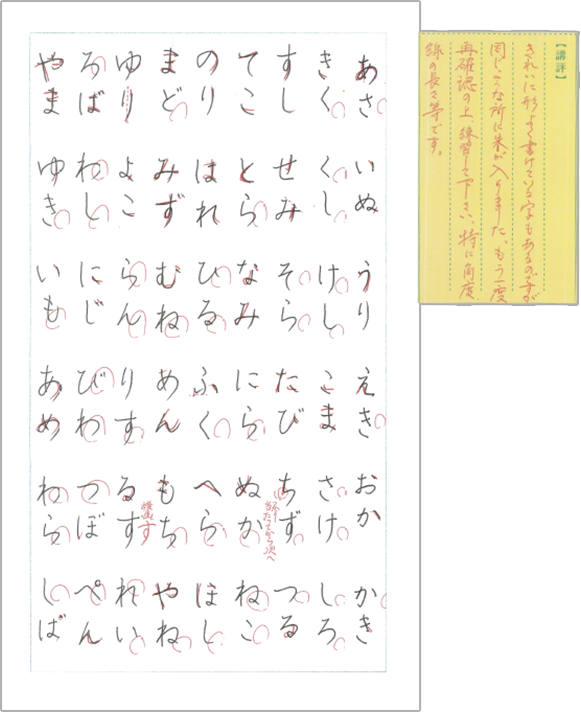 【講評】
きれいに形よく書けている字もあるのですが
同じような所に朱が入りました。もう一度
再確認の上、練習して下さい。特に角度
線の長さ等です。
あさ いぬ うり えき おか かき
きく くし けし こま さけ しろ
すし せみ そら たび ちず つる
当たってから次へ
てこ とら なみ にら ぬか ねこ
のり はれ ひる ふく へら ほし
まど みず むね めん もち やね
す
ゆり よこ らん りす るす れい
ろば わし にじ びわ つぼ ぺん
やま ゆき いも あめ わら しば